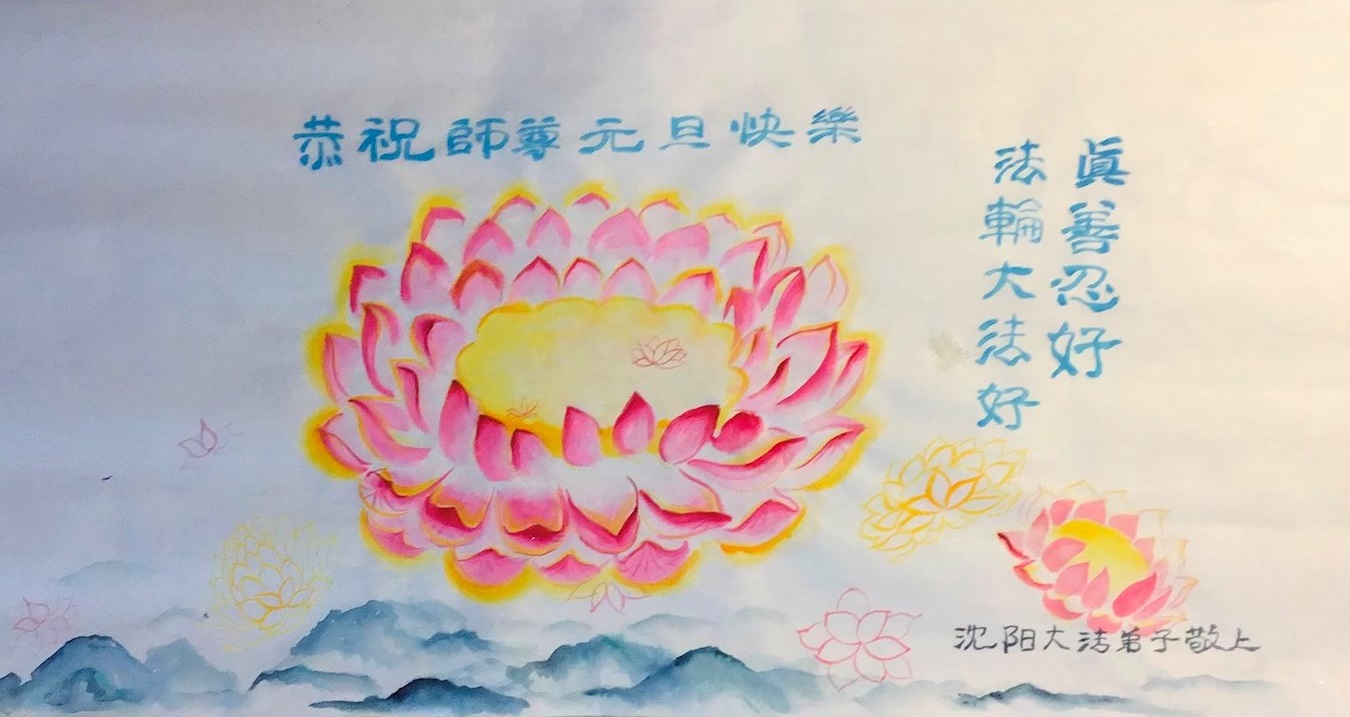 恭祝師尊元旦快樂
眞善忍好
法輪大法好
沈阳大法弟子敬上